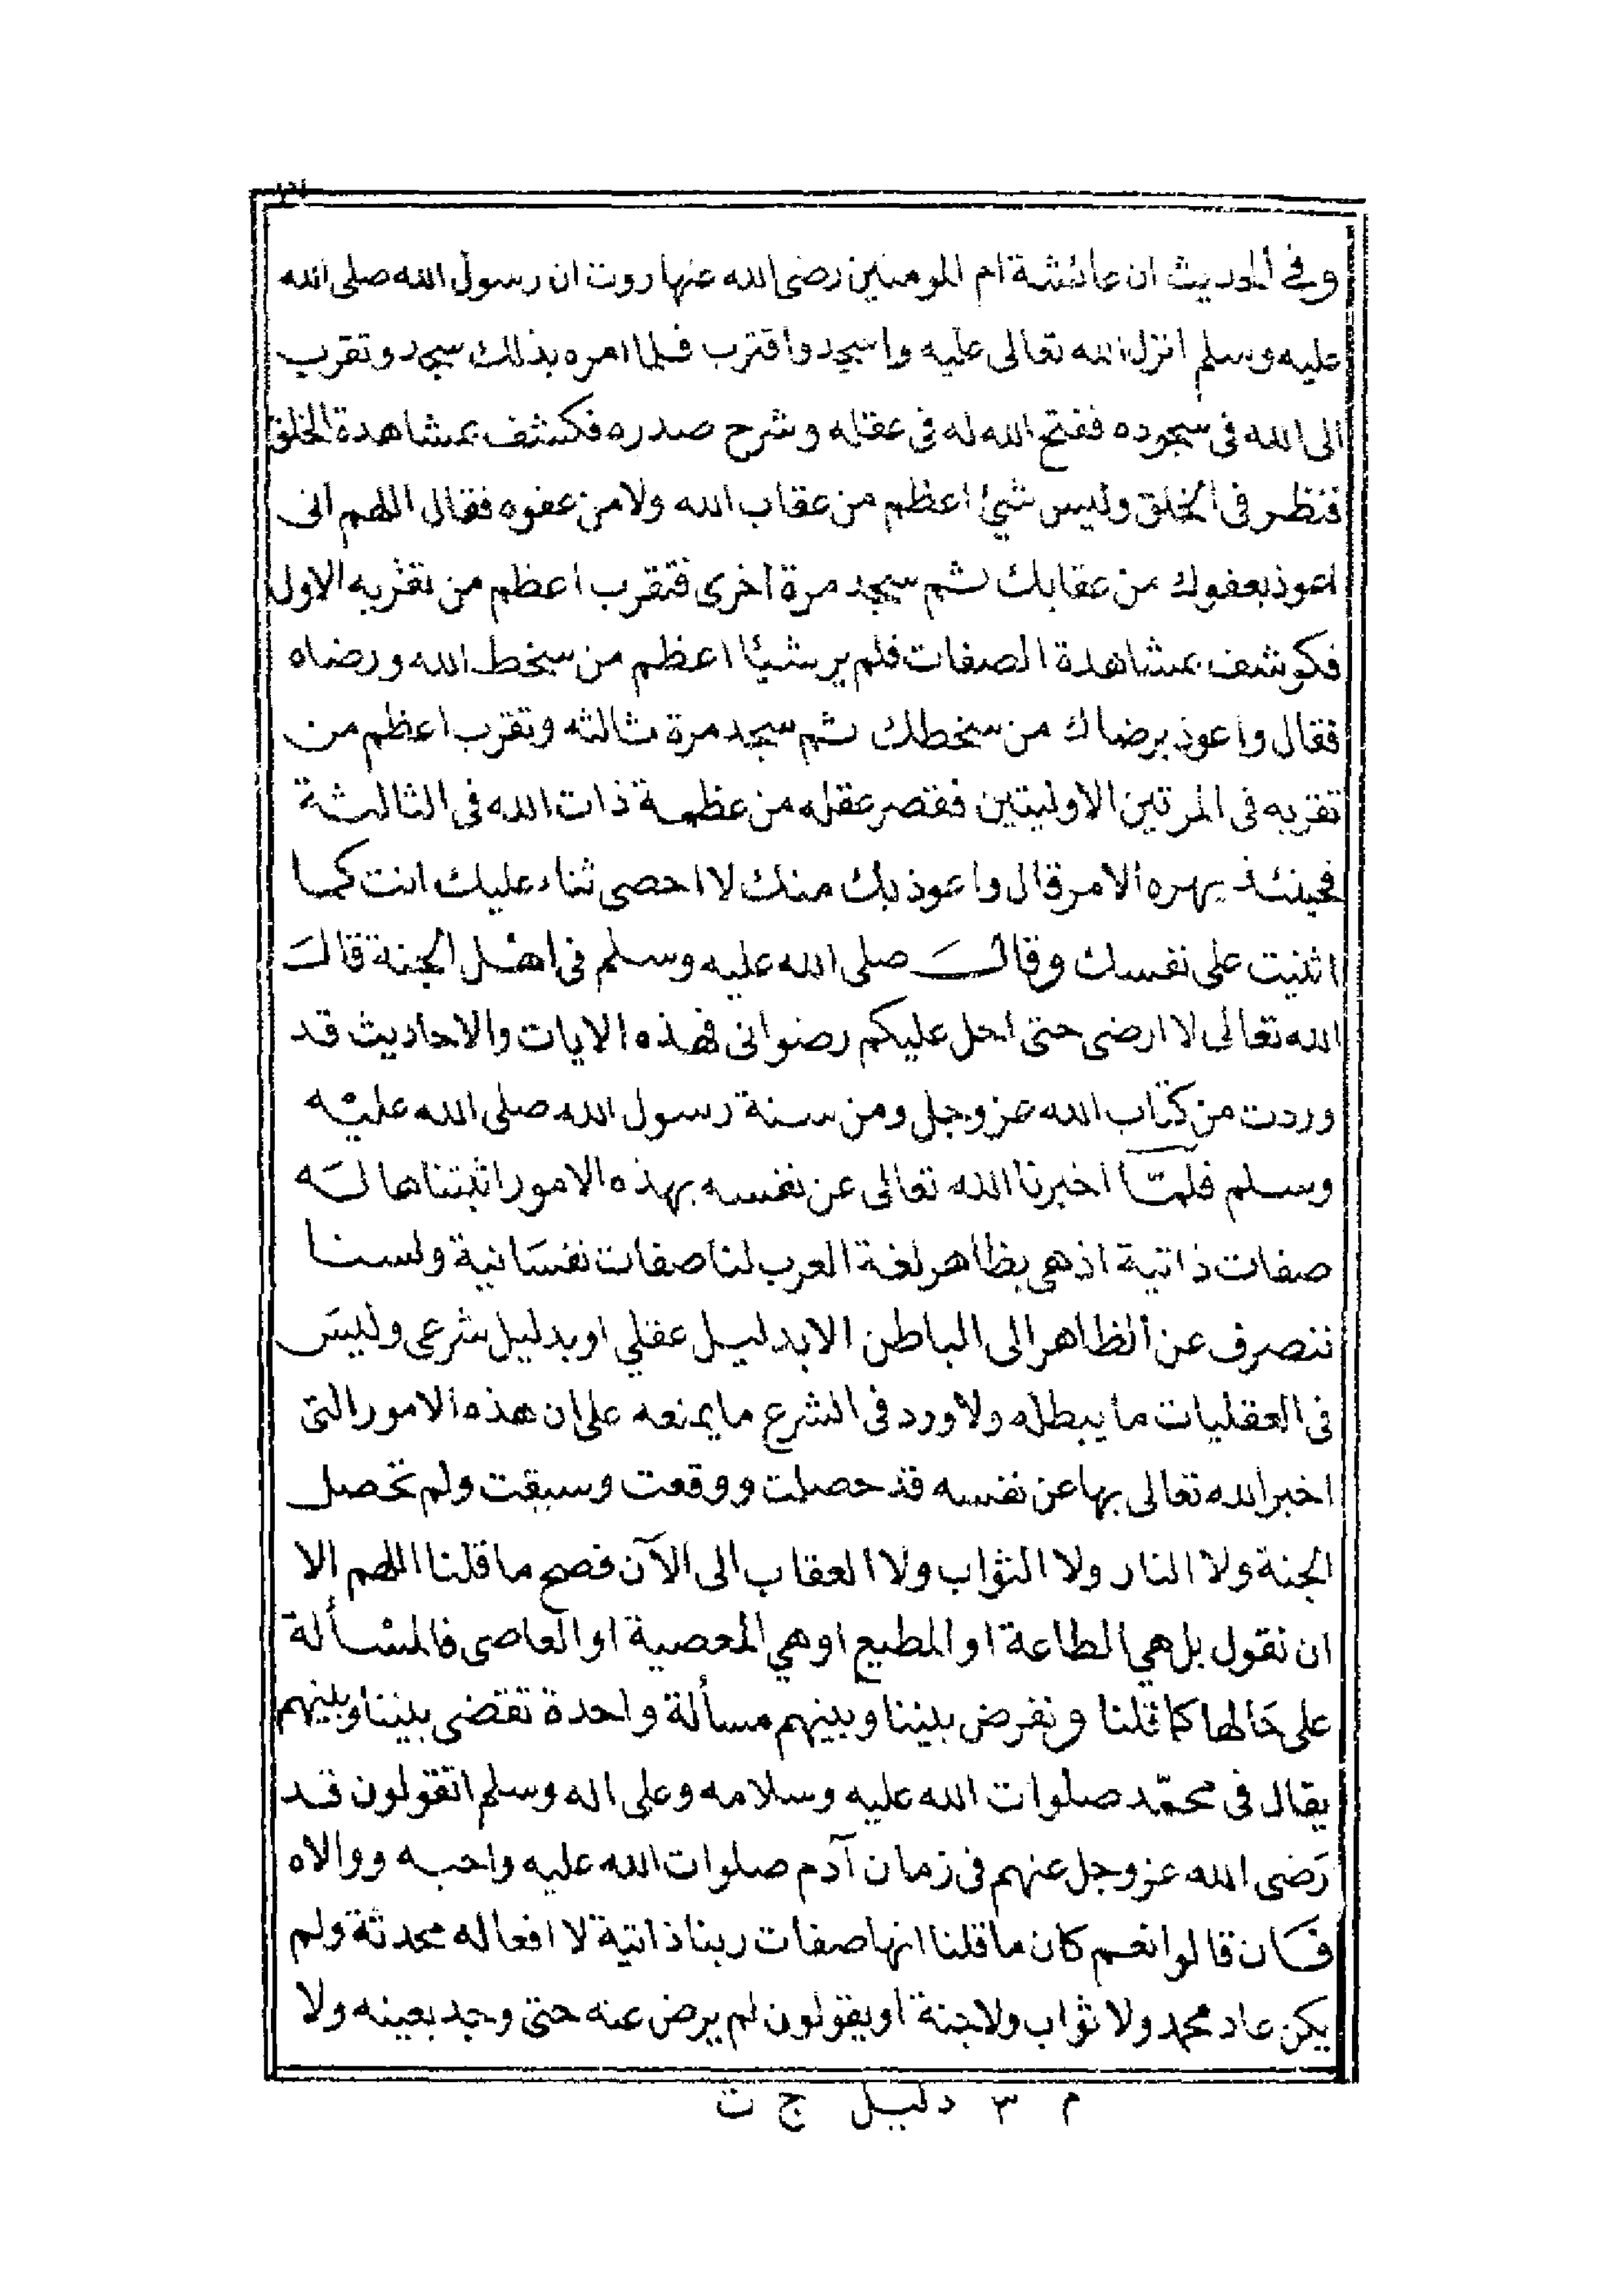 وفي الحديث ان عائشة ام المومنين رضى الله عنها روت ان رسول الله صلى الله
عليه وسلم انزل الله تعالى عليه واسجد واقترب فلما امره بذلك سجد وتقرب
الى الله فى سجوده ففتح الله له فى عقله وشرح صدره فكشف بمشاهدة الخلق
فنظر فى الخلق وليس شيئ اعظم من عقاب الله ولا من عفوه فقال اللهم انى
اعوذ بعفوك من عقابك ثم سجد مرة اخرى فتقرب اعظم من تقربه الاول
فكوشف بمشاهدة الصفات فلم ير شيئا اعظم من سخط الله ورضاه
فقال واعوذ برضاك من سخطك ثم سجد مرة ثالثه وتقرب اعظم من
تقربه فى المرتين الاوليتين فقصر عقله من عظمة ذات الله فى الثالثة
فحينئذ بهره الامر قال واعوذ بك منك لا احصى ثناء عليك انت كما
اثنيت على نفسك وقالَ صلى الله عليه وسلم فى اهل الجنة قالَ
الله تعالى لا ارضى حتى احل عليكم رضوانى فهذه الايات والاحاديث قد
وردت من كتاب الله عز وجل ومن سنة رسول الله صلى الله عليه
وسلم فلمّا اخبرنا الله تعالى عن نفسه بهذه الامور اثبتناها لَه
صفات ذاتية اذ هي بظاهر لغة العرب لنا صفات نفسَانية ولسنا
ننصرف عن الظاهر الى الباطن الا بدليل عقلي او بدليل شرعى وليسَ
فى العقليات ما يبطله ولا ورد فى الشرع ما يمنعه على ان هذه الامور التى
اخبر الله تعالى بها عن نفسه قد حصلت ووقعت وسبقت ولم تحصل
الجنة ولا النار ولا الثواب ولا العقاب الى الآن فصح ما قلنا اللهم الا
ان نقول بل هي الطاعة او المطيع او هي المعصية او العاصى فالمسألة
على حَالها كما قلنا ونفرض بيننا وبينهم مسألة واحدة تقضى بيننا وبينهم
يقال فى محمّد صلوات الله عليه وسلامه وعلى اله وسلم اتقولون قد
رَضى الله عز وجل عنهم فى زمان آدم صلوات الله عليه واحبه ووالاه
فَان قالوا نعم كان ما قلنا انها صفات ربنا ذاتية لا افعاله محدثة ولم
يكن عاد محمد ولا ثواب ولا جنة او يقولون لم يرض عنه حتى وجد بعينه ولا
م ٣ دليل ج ت